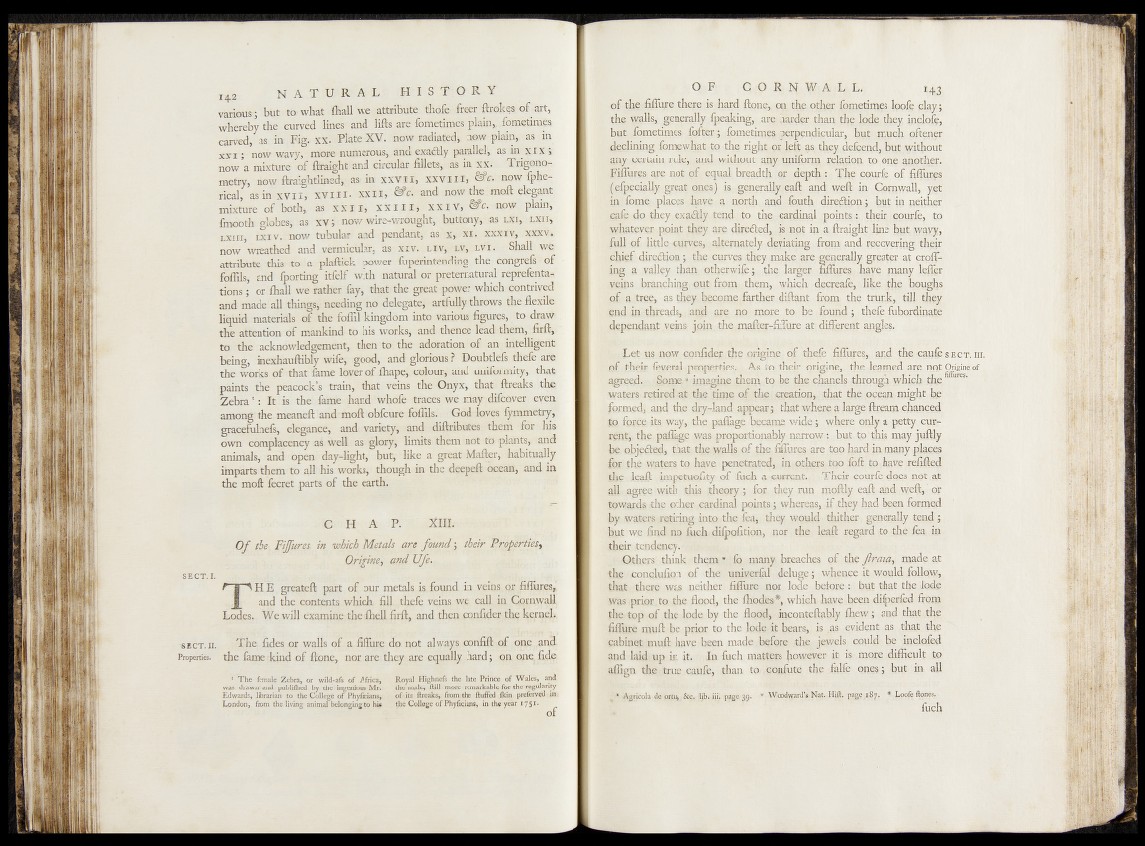 142 NATURAL HISTORY
various; but to what ſhall we attribute thoſe freer ſtrokes of art,
whereby the curved lines and liſts are ſometimes plain, ſometimes
carved, as in Fig. xx. Plate XV. now radiated, now plain, as in
xxi; now wavy, more numerous, and exactly parallel, as in xix;
now a mixture of ſtraight and circular fillets, as in xx. Trigono-
metry, now ſtraightlined, as in xxvii, xxviii, &c. now ſphe-
rical, as in xvii, xviii. xxii, &c. and now the moſt elegant
mixture of both, as xxii, xxiii, xxiv, &c. now plain,
ſmooth globes, as xv; now wire-wrought, buttony, as lxi, lxii,
lxiii, lxiv. now tubular and pendant, as x, xi. xxxiv, xxxv.
now wreathed and vermicular, as xiv. liv, lv, lvi. Shall we
attribute this to a plaſtick power ſuperintending the congreſs of
foſſils, and ſporting itſelf with natural or preternatural repreſenta-
tions; or ſhall we rather ſay, that the great power which contrived
and made all things, needing no delegate, artfully throws the flexile
liquid materials of the foſſil kingdom into various figures, to draw
the attention of mankind to his works, and thence lead them, firſt,
to the acknowledgement, then to the adoration of an intelligent
being, inexhauſtibly wiſe, good, and glorious? Doubtleſs theſe are
the works of that ſame lover of ſhape, colour, and uniformity, that
paints the peacock's train, that veins the Onyx, that ſtreaks the
Zebra ¹: It is the ſame hand whoſe traces we may diſcover even
among the meaneſt and moſt obſcure foſſils. God loves ſymmetry,
gracefulneſs, elegance, and variety, and diſtributes them for his
own complacency as well as glory, limits them not to plants, and
animals, and open day-light, but, like a great Maſter, habitually
imparts them to all his works, though in the deepeſt ocean, and in
the moſt ſecret parts of the earth.
CHAP. XIII.
Of the Fiſſures in which Metals are found; their Properties,
Origine, and Uſe.
SECT. I.
THE greateſt part of our metals is found in veins or fiſſures,
and the contents which fill theſe veins we call in Cornwall
Lodes. We will examine the ſhell firſt, and then conſider the kernel.
SECT. II.
Properties.
The ſides or walls of a fiſſure do not always conſiſt of one and
the ſame kind of ſtone, nor are they are equally hard; on one ſide
¹ The female Zebra, or wild-aſs of Africa,
was drawn and publiſhed by the ingenious Mr.
Edwards, librarian to the College of Phyſicians,
London, from the living animal belonging to his
Royal Highneſs the late Prince of Wales, and
the male, ſtill more remarkable for the regularity
of its ſtreaks, from the ſtuffed ſkin preſerved in
the College of Phyſicians, in the year 1751.
of
OF CORNWALL. 143
of the fiſſure there is hard ſtone, on the other ſometimes looſe clay;
the walls, generally ſpeaking, are harder than the lode they incloſe,
but ſometimes ſofter; ſometimes perpendicular, but much oftener
declining ſomewhat to the right or left as they deſcend, but without
any certain rule, and without any uniform relation to one another.
Fiſſures are not of equal breadth or depth: The courſe of fiſſures
(eſpecially great ones) is generally eaſt and weſt in Cornwall, yet
in ſome places have a north and ſouth direction; but in neither
caſe do they exactly tend to the cardinal points: their courſe, to
whatever point they are directed, is not in a ſtraight line but wavy,
full of little curves, alternately deviating from and recovering their
chief direction; the curves they make are generally greater at croſſ-
ing a valley than otherwiſe; the larger fiſſures have many leſſer
veins branching out from them, which decreaſe, like the boughs
of a tree, as they become farther diſtant from the trunk, till they
end in threads, and are no more to be found; theſe ſubordinate
dependant veins join the maſter-fiſſure at different angles.
Let us now conſider the origine of theſe fiſſures, and the cauſe
SECT. III.
of their ſeveral properties. As to their origine, the learned are not
Origine of
fiſſures.
agreed. Some imagine them to be the chanels through which the
waters retired at the time of the creation, that the ocean might be
formed, and the dry-land appear; that where a large ſtream chanced
to force its way, the paſſage became wide; where only a petty cur-
rent, the paſſage was proportionably narrow: but to this may juſtly
be objected, that the walls of the fiſſures are too hard in many places
for the waters to have penetrated, in others too ſoft to have reſiſted
the leaſt impetuoſity of ſuch a current. Their courſe does not at
all agree with this theory; for they run moſtly eaſt and weſt, or
towards the other cardinal points; whereas, if they had been formed
by waters retiring into the ſea, they would thither generally tend;
but we find no ſuch diſpoſition, nor the leaſt regard to the ſea in
their tendency.
Others think them ſo many breaches of the ſtrata, made at
the concluſion of the univerſal deluge; whence it would follow,
that there was neither fiſſure nor lode before: but that the lode
was prior to the flood, the ſhodes*, which have been diſperſed from
the top of the lode by the flood, inconteſtably ſhew; and that the
fiſſure muſt be prior to the lode it bears, is as evident as that the
cabinet muſt have been made before the jewels could be incloſed
and laid up in it. In ſuch matters however it is more difficult to
aſſign the true cauſe, than to confute the falſe ones; but in all
Agricola de ortu, &c. lib. iii. page 39. Woodward's Nat. Hiſt. page 187. * Looſe ſtones.
ſuch